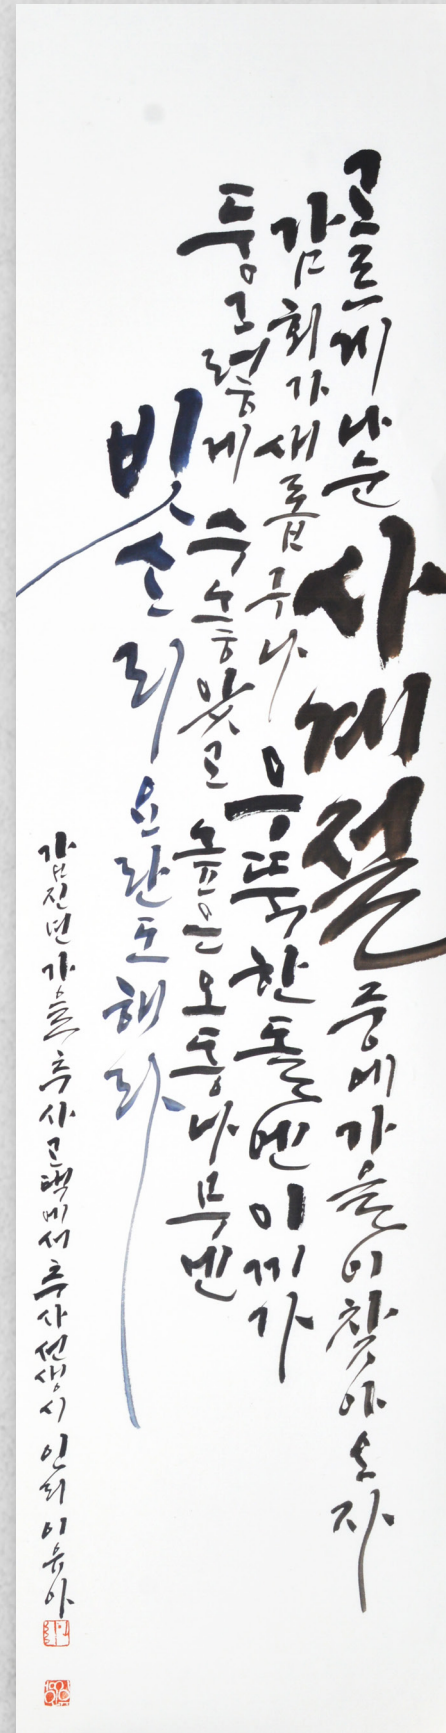 고르게 나눈 사계절 중에 가을이 찾아오자
감회가 새롭구나 우뚝한 돌엔 이끼가
둥그렇게 수놓았고 높은 오동나무엔
빗소리 요란도 해라
갑진년 가을 추사고택에서 추사선생 시 인희 이윤아